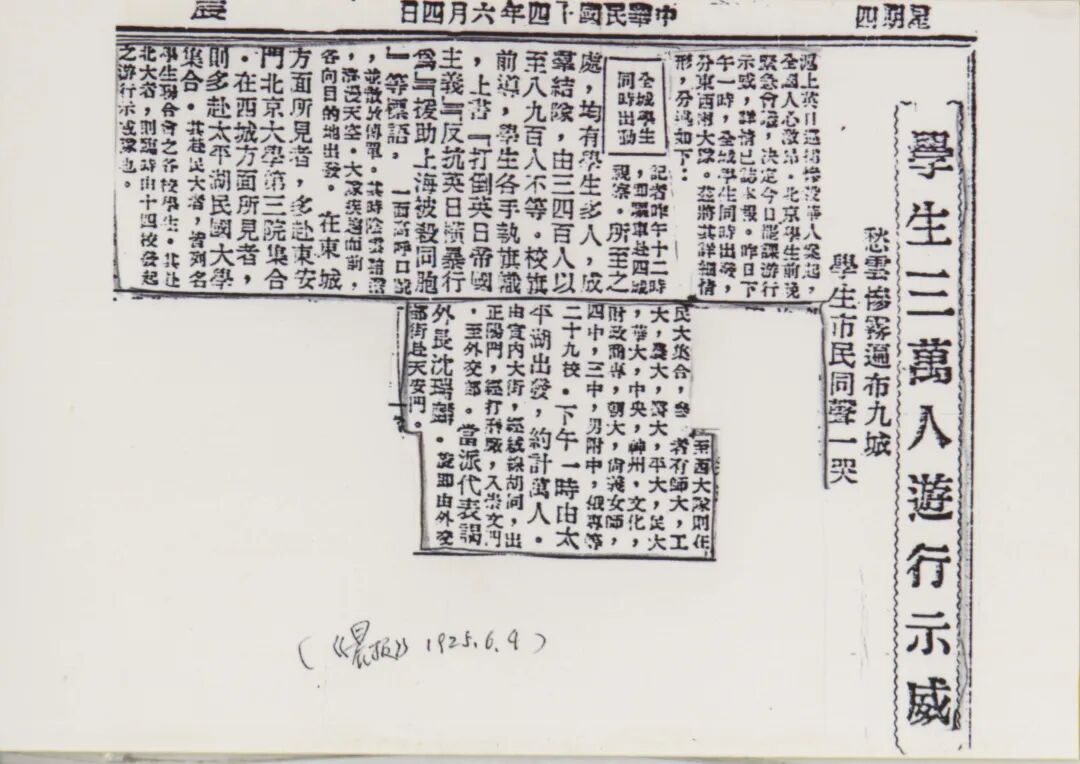 晨
中華民國十四年六月四日
星期四
學生三萬人遊行示威
愁雲慘霧遍布九城
學生市民同聲一哭
滬上英日巡捕慘殺華人案起，
全國人心激昂。北京學生前晚
緊急會議，決定今日罷課游行
示威，詳情已誌本報。昨日下
午一時，全城學生同時出發，
分東西兩大隊。茲將其詳細情
形，分誌如下：
全城學生
同時出動
記者昨午十二時
，即驅車赴四城
視察。所至之
處，均有學生多人，成
羣結隊，由三四百人以
至八九百人不等。校旗
前導，學生各手執旗幟
，上書『打倒英日帝國
主義』『反抗英日橫暴行
爲』『援助上海被殺同胞
』等標語，一面高呼口號
，並散放傳單。其時陰雲
，瀰漫天空。大隊疾趨而前，
各向目的地出發。在東城
方面所見者，多赴東安
門北京大學第三院集合
。在西城方面所見者，
則多赴太平湖民國大學
集合。其赴民大者，皆列名
學生聯合會之各校學生。其赴
北大者，則臨時由十四校發起
之游行示威隊也。
至西大隊則在
民大集合，參者有師大，工
大，農大，醫大，平大，民大
，華大，中央，神州，文化，
財政商專，朝大，尚義女師，
四中，三中，男附中，俄專等
二十九校。下午一時由太
平湖出發，約計萬人。
由宣內大街，經絨線胡同，出
正陽門，經打磨廠，入崇文門
，至外交部。當派代表謁
外長沈瑞麟。旋即由外交
部街赴天安門。
（《晨报》1925.6.4）